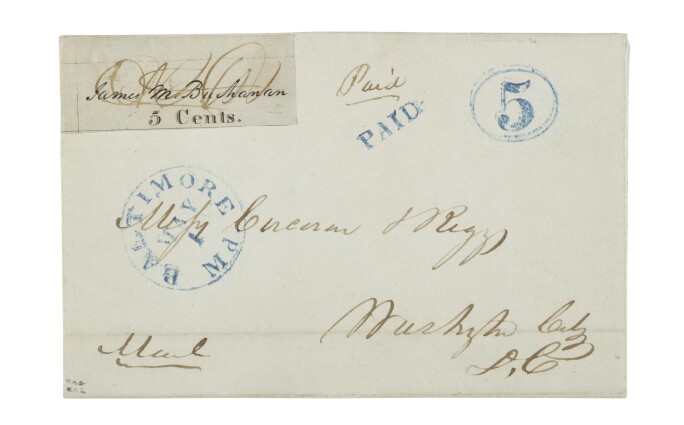 James M. Buchanan
5 Cents.
Paid
PAID
5
BALTIMORE Md
MAY
1
Messrs Corcoran & Riggs
Washington City
D.C